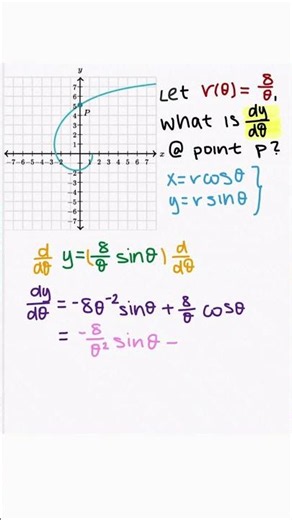 y
7
6
5
4
3
2
1
P
-7 -6 -5 -4 -3 -2 -1 1 2 3 4 5 6 7 x
-1
-2
-3
-4
-5
-6
-7
Let r(θ) = 8/θ,
what is dy/dθ
@ point P?
x=rcosθ
y=rsinθ
d/dθ y=(8/θ sinθ) d/dθ
dy/dθ = -8θ⁻² sinθ + 8/θ cosθ
= -8/θ² sinθ -